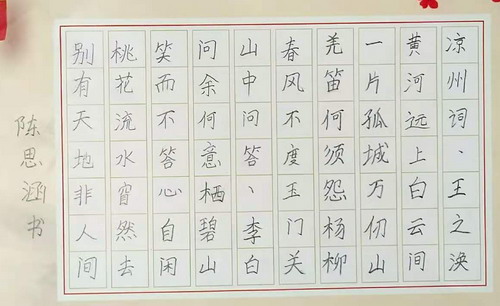 凉州词、王之涣
黄河远上白云间
一片孤城万仞山
羌笛何须怨杨柳
春风不度玉门关
山中问答、李白
问余何意栖碧山
笑而不答心自闲
桃花流水窅然去
别有天地非人间
陈思涵书